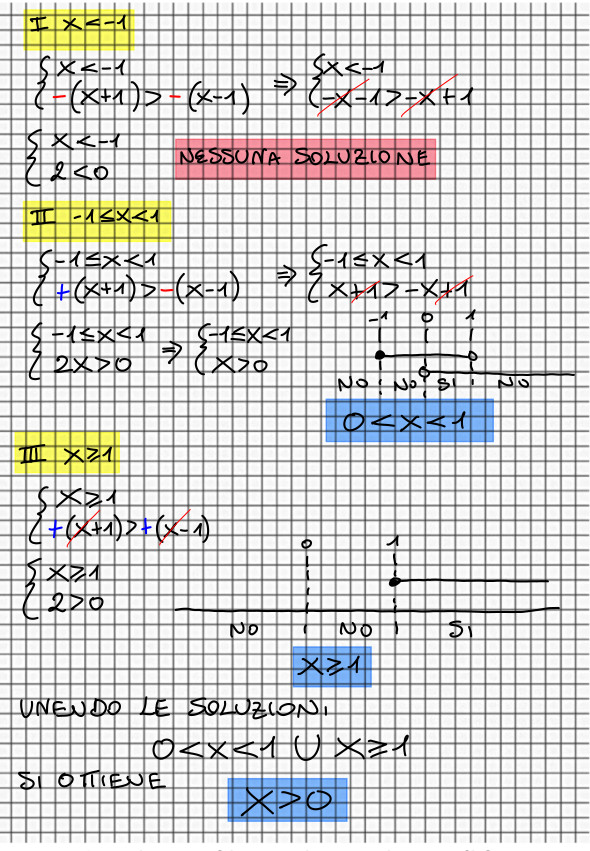 I x<-1
{x<-1 ⇒ {x<-1
{-(x+1)>-(x-1) {-x-1>-x+1
{x<-1
{2<0
NESSUNA SOLUZIONE
II -1≤x<1
{-1≤x<1 ⇒ {-1≤x<1
{+(x+1)>-(x-1) {x+1>-x+1
-1 0 1
{-1≤x<1 ⇒ {-1≤x<1
{2x>0 {x>0
NO NO SI NO
0<x<1
III x≥1
{x≥1
{+(x+1)>+(x-1)
0 1
{x≥1
{2>0
NO NO SI
x≥1
UNENDO LE SOLUZIONI
0<x<1 ∪ x≥1
SI OTTIENE
x>0